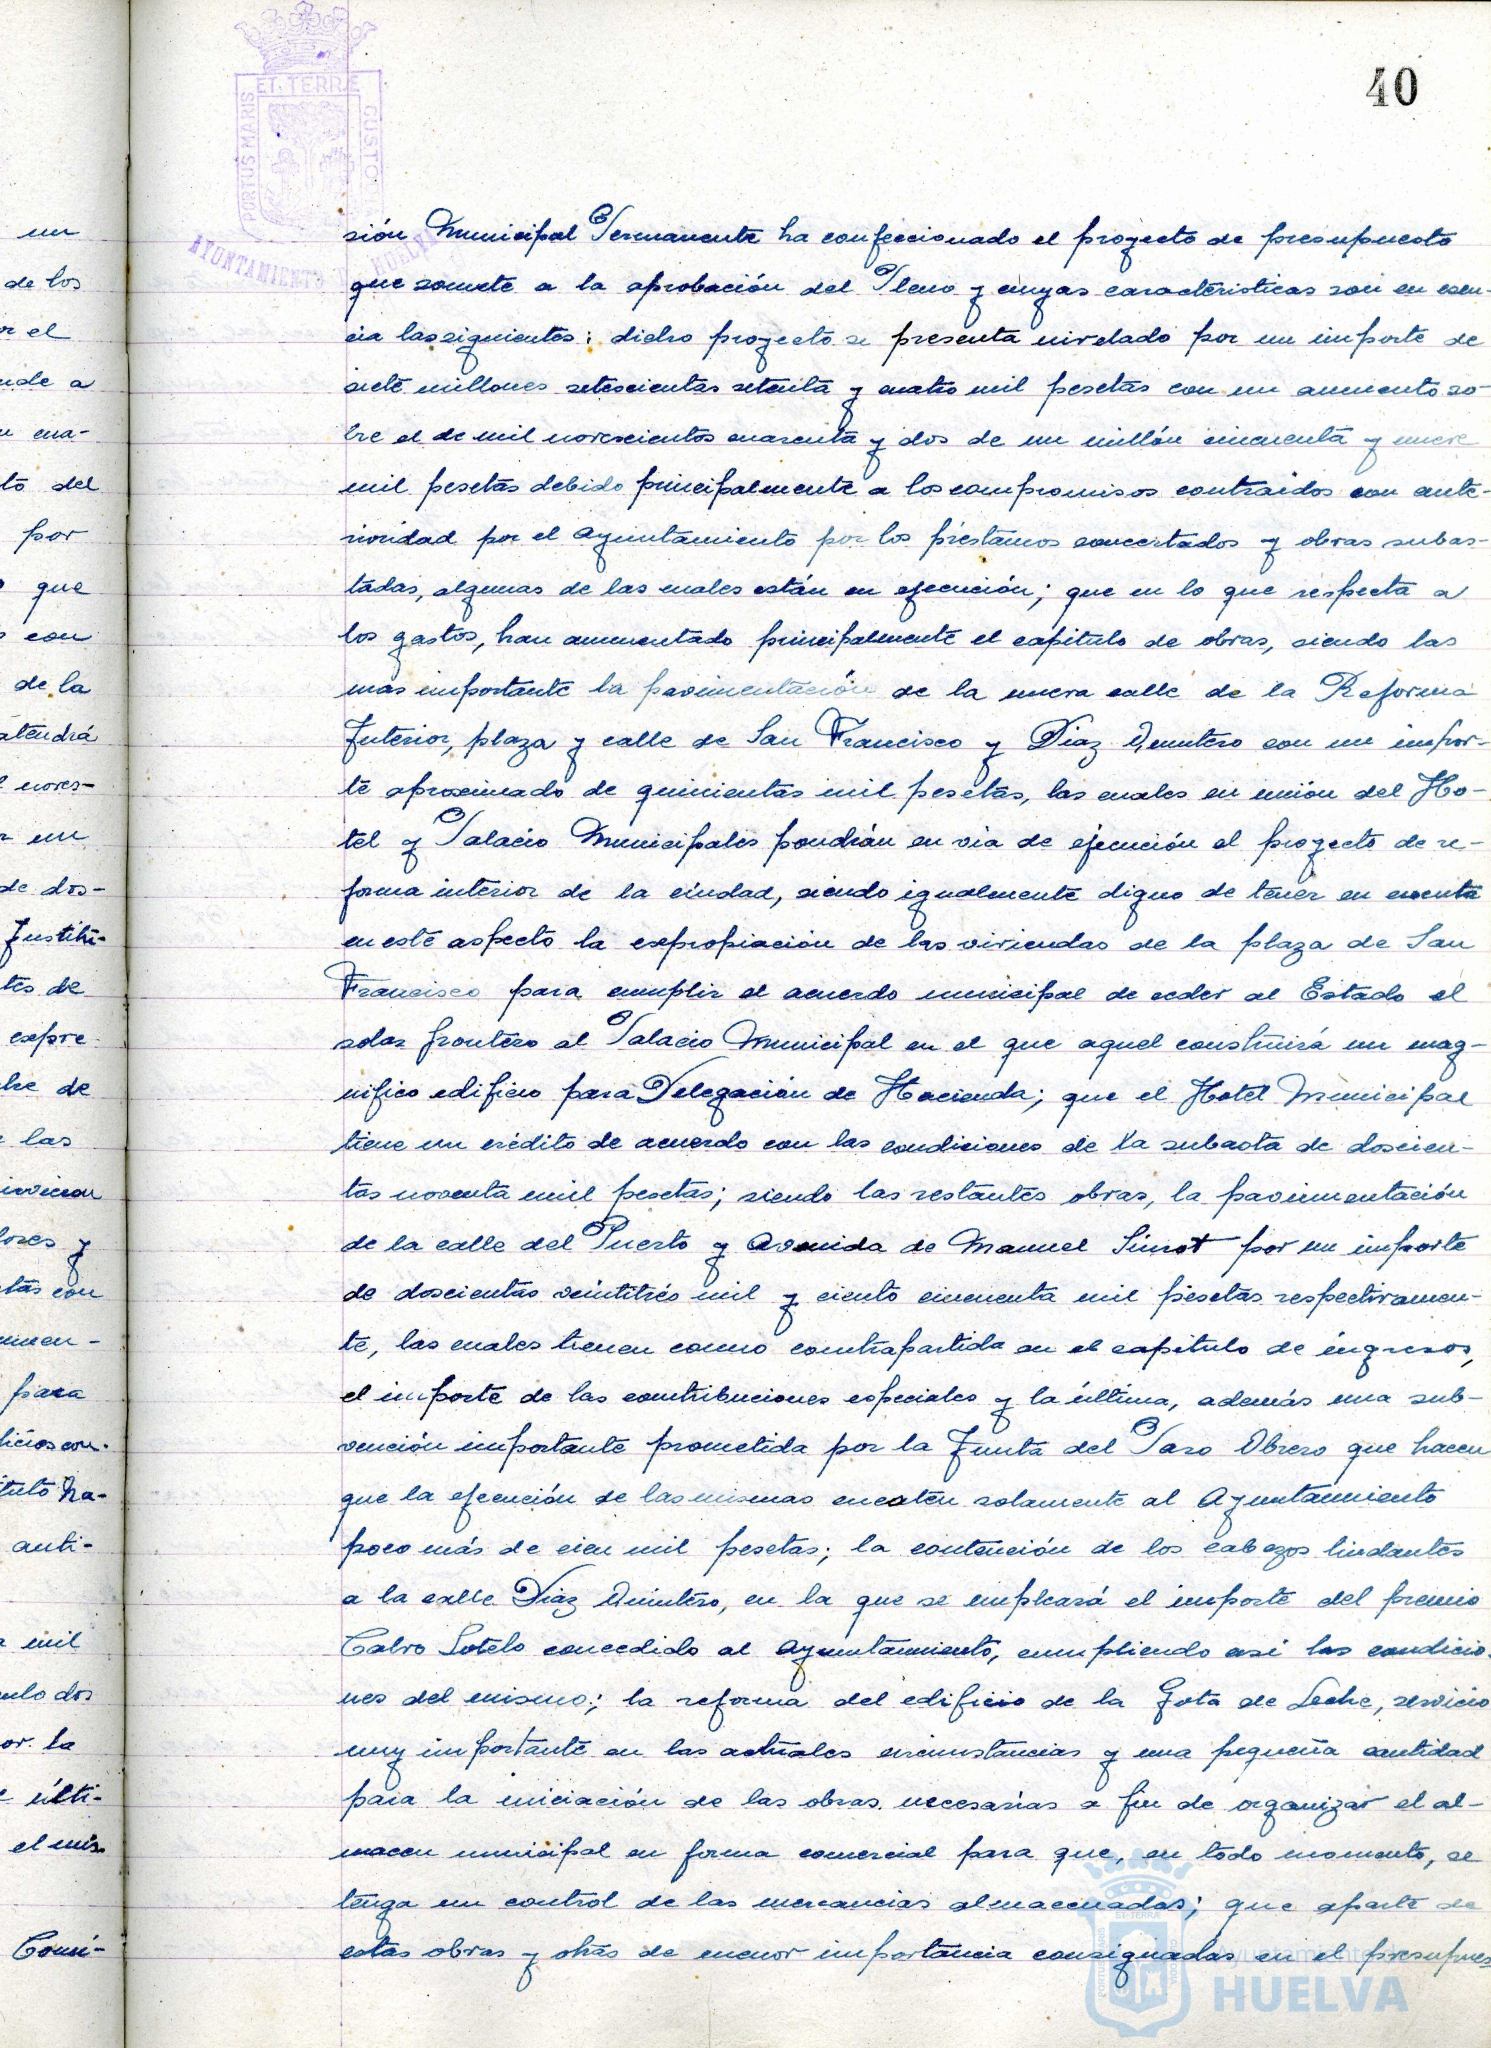 40
PORTUS MARIS ET TERRE CUSTO
AYUNTAMIENTO DE HUELVA
un
de los
or el
nde a
n cua-
to del
por
que
s con
de la
atendrá
l nores-
r un
de dos-
Instihi-
tes de
expre
bre de
las
lores y
tas con
para
ficios con-
ituto Na-
anti-
mil
culo dos
or la
últi-
el mis
Comi-
sión Municipal Permanente ha confeccionado el proyecto de presupuesto
que somete a la aprobación del Pleno y cuyas caracteristicas son en esen-
cia las siguientes: dicho proyecto se presenta nivelado por un importe de
siete millones setescientas setenta y cuatro mil pesetas con un aumento so-
bre el de mil novescientos cuarenta y dos de un millón cincuenta y nueve
mil pesetas debido principalmente a los compromisos contraidos con ante-
rioridad por el Ayuntamiento por los préstamos concertados y obras subas-
tadas, algunas de las cuales están en ejecución; que en lo que respecta a
los gastos, han aumentado principalmente el capitulo de obras, siendo las
mas importante la pavimentación de la nueva calle de la Reforma
Interior, plaza y calle de San Francisco y Diaz Quintero con un impor-
te aproximado de quinientas mil pesetas, las cuales en unión del Ho-
tel y Palacio Municipales pondrán en via de ejecución el proyecto de re-
forma interior de la ciudad, siendo igualmente digno de tener en cuenta
en este aspecto la expropiación de las viviendas de la plaza de San
Francisco para cumplir el acuerdo municipal de ceder al Estado el
solar frontero al Palacio Municipal en el que aquel construirá un mag-
nifico edificio para Delegación de Hacienda; que el Hotel Municipal
tiene un crédito de acuerdo con las condiciones de la subasta de doscien-
tas noventa mil pesetas; siendo las restantes obras, la pavimentación
de la calle del Puerto y Avenida de Manuel Siurot por un importe
de doscientas veintitrés mil y ciento cincuenta mil pesetas respectivamen-
te, las cuales tienen como contrapartida en el capitulo de ingresos,
el importe de las contribuciones especiales y la última, además una sub-
vención importante prometida por la Junta del Paro Obrero que hacen
que la ejecución de las mismas cuesten solamente al Ayuntamiento
poco más de cien mil pesetas; la contención de los cabezos lindantes
a la calle Diaz Quintero, en la que se empleará el importe del premio
Calvo Sotelo concedido al Ayuntamiento, cumpliendo asi las condicio-
nes del mismo; la reforma del edificio de la Gota de Leche, servicio
muy importante en las actuales circunstancias y una pequeña cantidad
para la iniciación de las obras necesarias a fin de organizar el al-
macen municipal en forma comercial para que, en todo momento, se
tenga un control de las mercancias almacenadas; que aparte de
estas obras y otras de menor importancia consignadas en el presupues
Ayuntamiento de
HUELVA